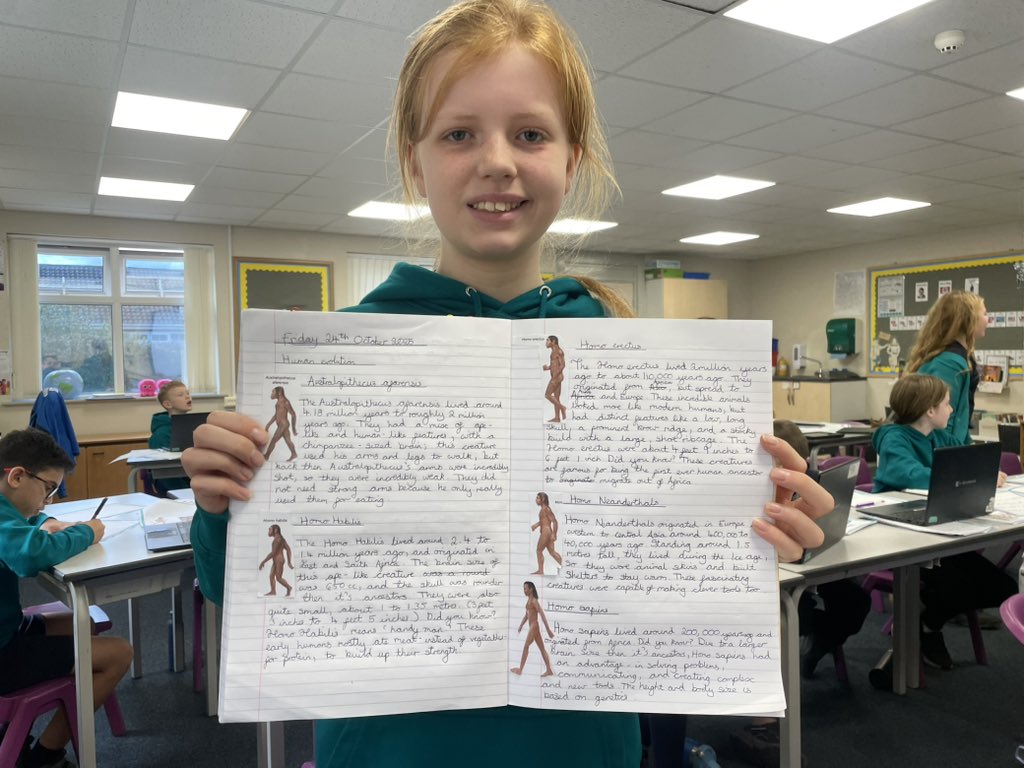 Friday 24th October 2025
Human evolution
Australopithecus afarensis
Australopithecus afarensis
The Australopithecus afarensis lived around
4.18 million years to roughly 2 million
years ago. They had a mixe of ape-
like and human-like features, with a
chimpanzee-sized brain, this creature
used his arms and legs to walk, but
back then Australopithecus's arms were incredibly
shot, so they were incredibly weak. They did
not need strong arms because he only really
used them for eating.
Homo habilis
Homo Habilis
The Homo Habilis lived around 2.4 to
1.4 million years ago, and originated in
East and South Africa. The brain size of
this ape-like creature was a round
was 650 cc and the skull was rounder
then it's ancestors. They were also
quite small, about 1 to 1.35 metre. (3 feet
3 inche to 4 feet 5 inches) Did you know?
Homo Habilis means "handy man". These
early humans mostly ate meat instead of vegetables
for protein, to build up their strength.
Homo erectus
Homo erectus
The Homo erectus lived 2 million years
ago to about 110,000 years ago. They
originated from Africa, but spread to
Africa and Europe. These incredible animals
looked more like modern humans, but
had distinct features like a low, long
skull, a prominent brow ridge, and a stocky
build with a large, short ribcage. The
Homo erectus were about 4 feet 9 inches to
6 feet 1 inch. Did you know? These creatures
are famous for being the first ever human ancestor
to originate migrate out of Africa.
Homo Neanderthals
Homo Neanderthals originated in Europe and
western to central Asia around 400,000 to
40,000 years ago. Standing around 1.5
metres tall, they lived during the ice age,
So they wore animal skins and built
Shelters to stay warm. These fascinating
creatures were capable of making clever tools too.
Homo sapiens
Homo sapiens lived around 200,000 years ago and
originated from Africa. Did you know? Due to a larger
Brain size then it's ancestors, Homo Sapiens had
an advantage in solving problems,
communicating, and creating complex
and new tools. The height and body size is
based on genetics.